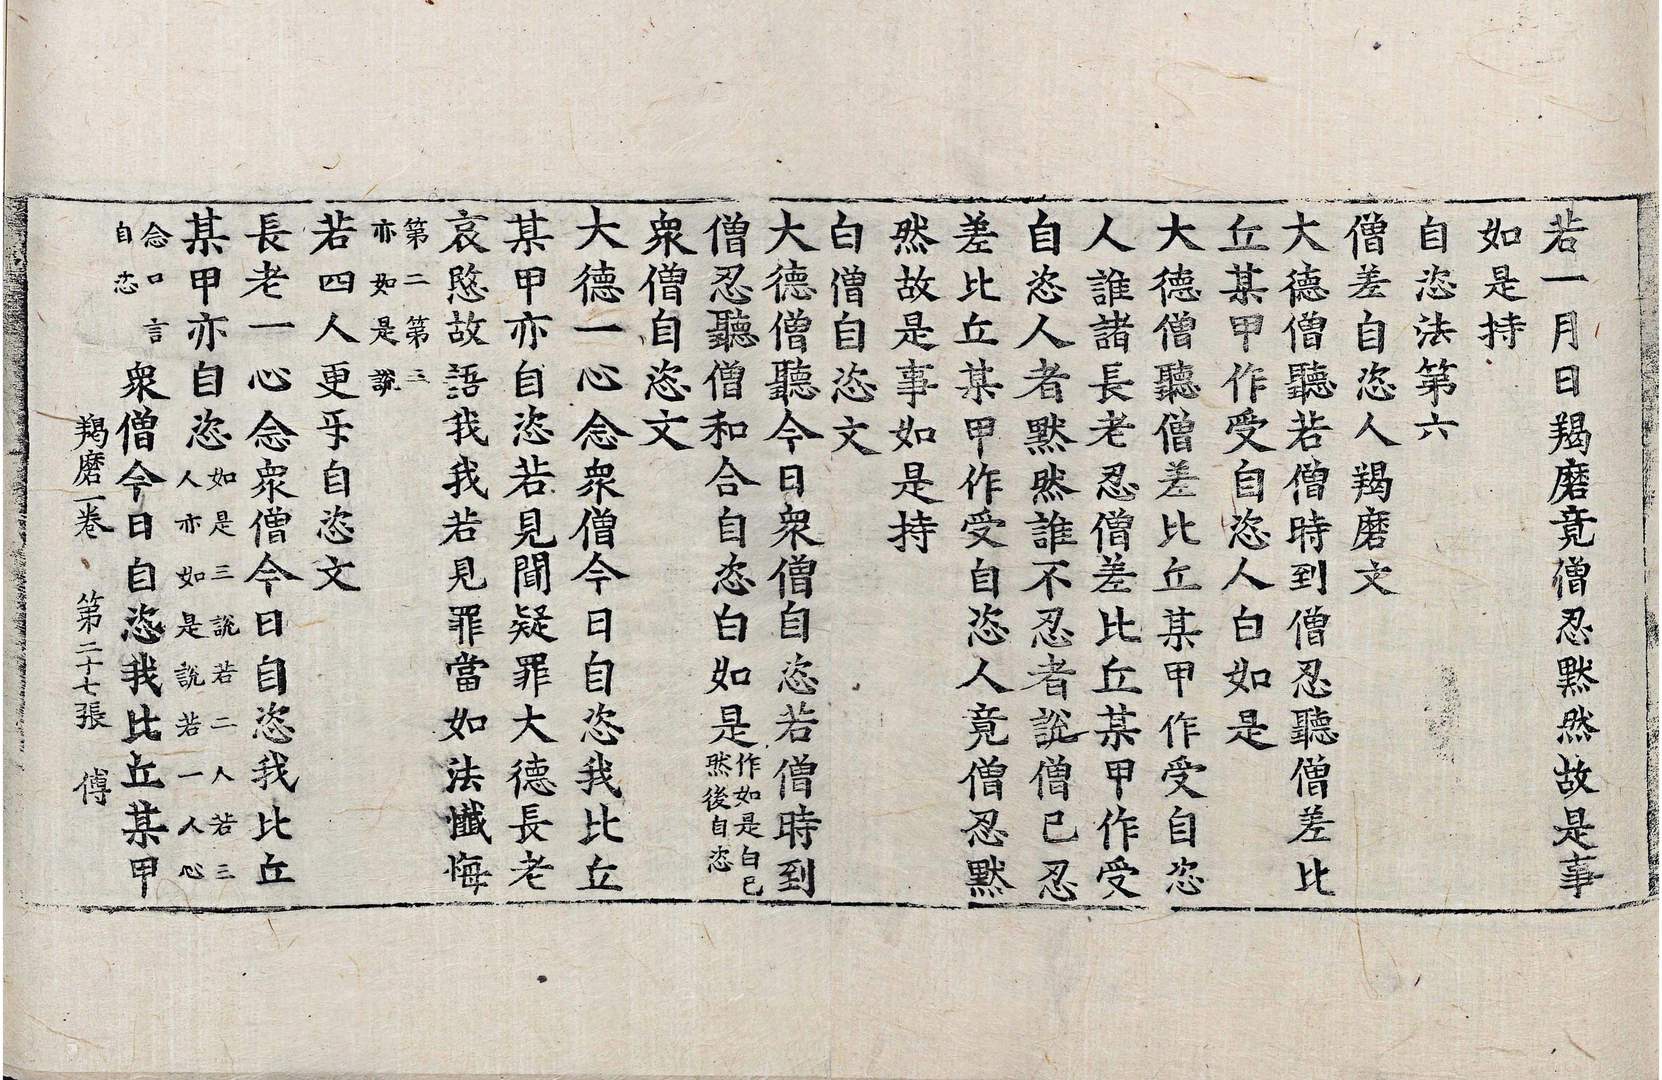 若一月日羯磨竟僧忍黙然故是事
如是持
自恣法第六
僧差自恣人羯磨文
大德僧聽若僧時到僧忍聽僧差比
丘某甲作受自恣人白如是
大德僧聽僧差比丘某甲作受自恣
人誰諸長老忍僧差比丘某甲作受
自恣人者黙然誰不忍者說僧已忍
差比丘某甲作受自恣人竟僧忍黙
然故是事如是持
白僧自恣文
大德僧聽今日衆僧自恣若僧時到
僧忍聽僧和合自恣白如是作如是白已然後自恣
衆僧自恣文
大德一心念衆僧今日自恣我比丘
某甲亦自恣若見聞疑罪大德長老
哀愍故語我我若見罪當如法懺悔
第二第三亦如是說
若四人更互自恣文
長老一心念衆僧今日自恣我比丘
某甲亦自恣如是三說若二人若三人亦如是說若一人心
念口言自恣衆僧今日自恣我比丘某甲
羯磨一卷 第二十七張 傅